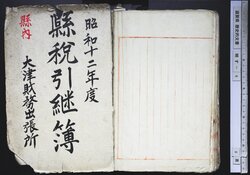 昭和十二年度
縣税引継簿
縣内
大津財務出張所